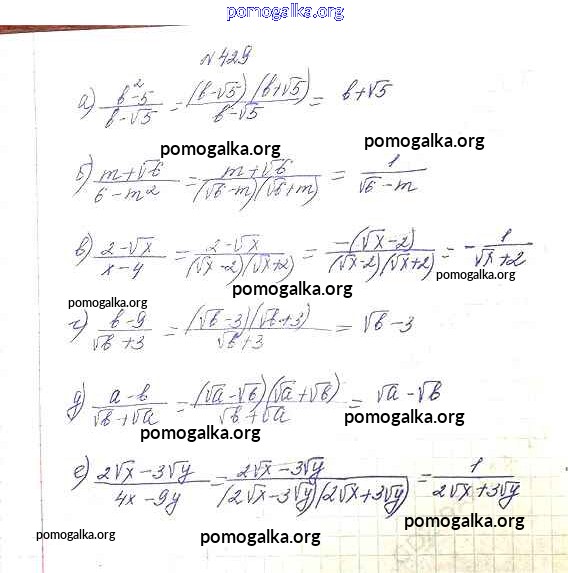 pomogalka.org
№429
а) (b²-5)/(b-√5) = ((b-√5)(b+√5))/(b-√5) = b+√5
pomogalka.org pomogalka.org
б) (m+√6)/(6-m²) = (m+√6)/((√6-m)(√6+m)) = 1/(√6-m)
pomogalka.org
в) (2-√x)/(x-4) = (2-√x)/((√x-2)(√x+2)) = (-(√x-2))/((√x-2)(√x+2)) = -1/(√x+2)
pomogalka.org
pomogalka.org pomogalka.org
г) (b-9)/(√b+3) = ((√b-3)(√b+3))/(√b+3) = √b-3
pomogalka.org
д) (a-b)/(√b+√a) = ((√a-√b)(√a+√b))/(√b+√a) = √a-√b
pomogalka.org pomogalka.org
е) (2√x-3√y)/(4x-9y) = (2√x-3√y)/((2√x-3√y)(2√x+3√y)) = 1/(2√x+3√y)
pomogalka.org
pomogalka.org pomogalka.org